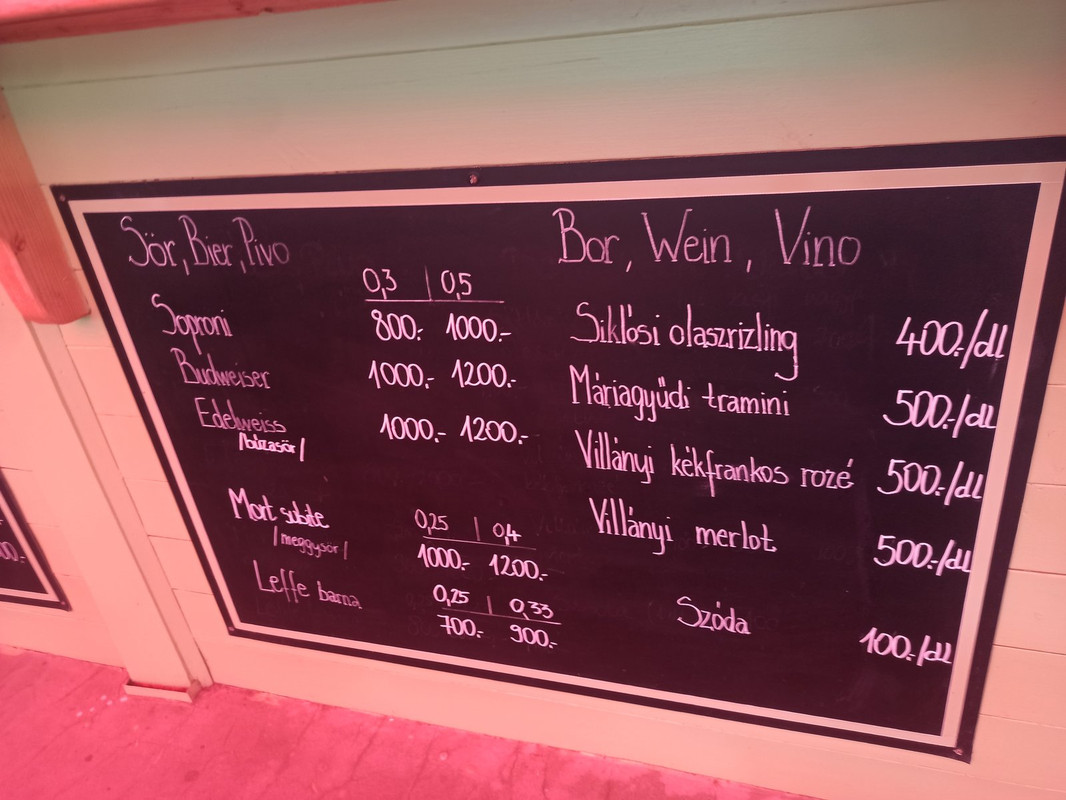 Sör, Bier, Pivo
0,3 | 0,5
Soproni 800.- 1000.-
Budweiser 1000.- 1200.-
Edelweiss 1000.- 1200.-
/búzasör/
Mort subite 0,25 | 0,4
/meggysör/ 1000.- 1200.-
Leffe barna 0,25 | 0,33
700.- 900.-
Bor, Wein, Vino
Siklósi olaszrizling 400.-/dl
Máriagyűdi tramini 500.-/dL
Villányi kékfrankos rozé 500.-/dl
Villányi merlot 500.-/dL
Szóda 100.-/dL